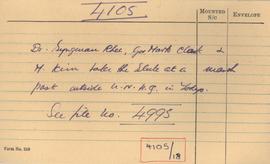 4105
MOUNTED
S/C
ENVELOPE
Dr. Syngman Rhee, Gen Mark Clark &
M. Kim take the Salute at a march
past outside U.N.H.Q. in Tokyo.
See file No. 4995
Form No. 159
4105
/18